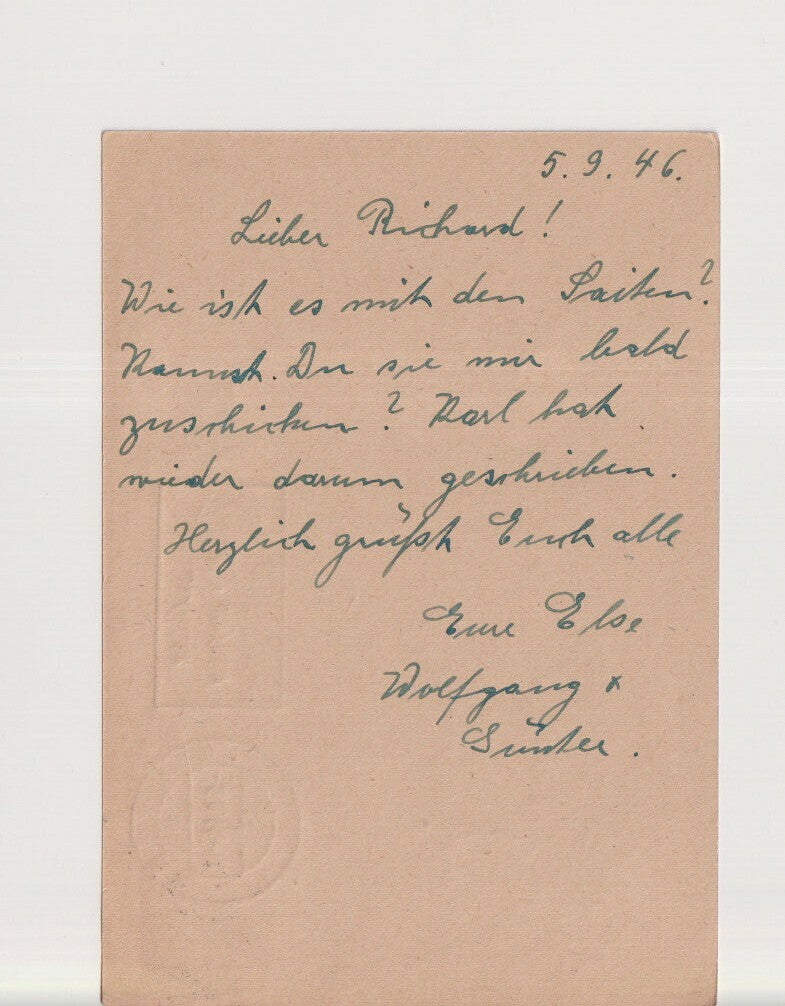 5. 9. 46.
Lieber Richard!
Wie ist es mit den Saiten?
Kannst Du sie mir bald
zuschicken? Karl hat
wieder darum geschrieben.
Herzlich grüßt Euch alle
Eure Else
Wolfgang +
Günter.